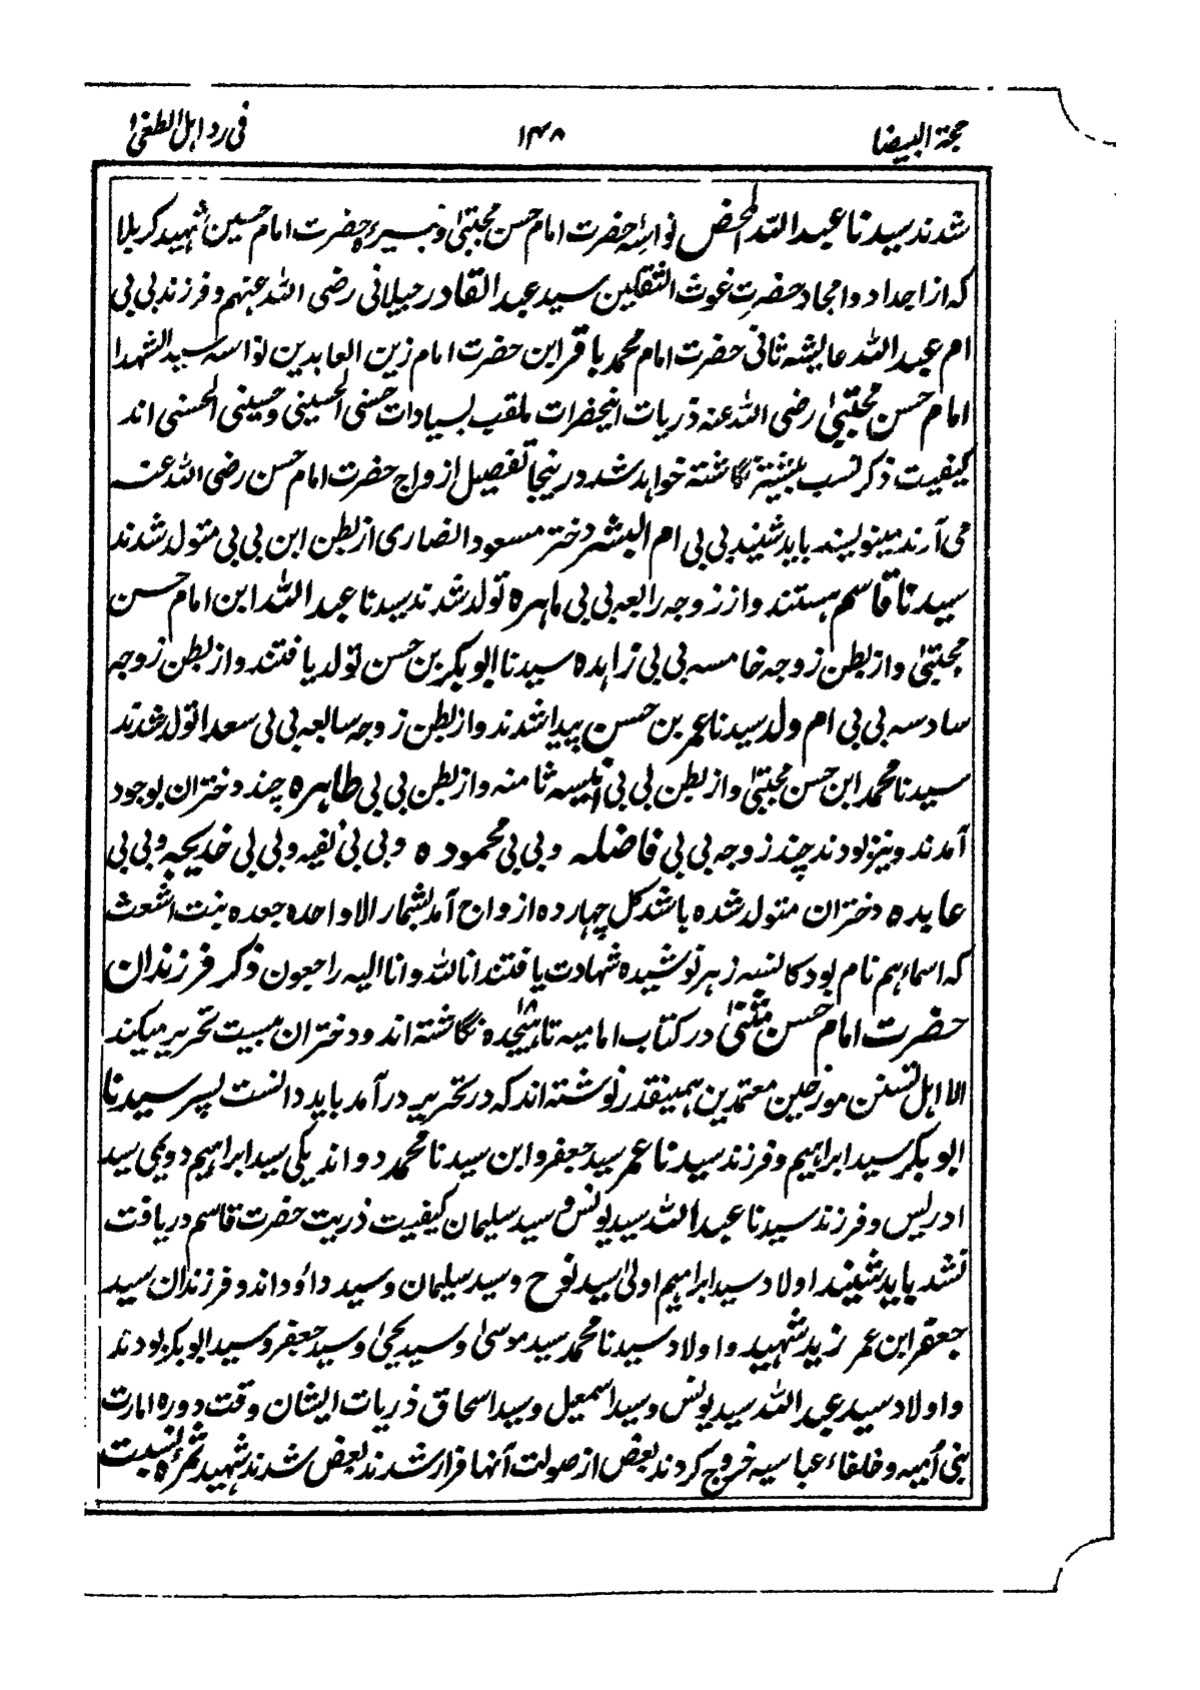 حجة البیضا ۱۴۸ فی رد اہل الطغیٰ
شدند سیدنا عبد اللہ المحض نواسہ حضرت امام حسن مجتبیٰ و نبیرہ حضرت امام حسین شہید کربلا
کہ از اجداد و امجاد حضرت غوث الثقلین سید عبد القادر جیلانی رضی اللہ عنہم و فرزند بی بی
ام عبد اللہ عایشہ ثانی حضرت امام محمد باقر ابن حضرت امام زین العابدین نواسہ سید الشہدا
امام حسن مجتبیٰ رضی اللہ عنہ ذریات اینحضرات ملقب بسیادات حسنی الحسینی و حسینی الحسنی اند
کیفیت ذکر نسب پیشتر نگاشتہ خواہد شد درینجا تفصیل ازواج حضرت امام حسن رضی اللہ عنہ
می آرند مینویسند باید شنید بی بی ام البشر دختر مسعود انصاری از بطن این بی بی متولد شدند
سیدنا قاسم ہستند و از زوجہ رابعہ بی بی ماہرہ تولد شدند سیدنا عبد اللہ ابن امام حسن
مجتبیٰ و از بطن زوجہ خامسہ بی بی زاہدہ سیدنا ابو بکر بن حسن تولد یافتند و از بطن زوجہ
سادسہ بی بی ام ولد سیدنا عمر بن حسن پیدا شدند و از بطن زوجہ سابعہ بی بی سعدا تولد شدند
سیدنا محمد ابن حسن مجتبیٰ و از بطن بی بی انیسہ ثامنہ و از بطن بی بی طاہرہ چند دختران بوجود
آمدند و نیز بودند چند زوجہ بی بی فاضلہ و بی بی محمودہ و بی بی نفیہ و بی بی خدیجہ و بی بی
عابدہ دختران متولد شدہ باشد کل چہاردہ ازواج آمد بشمار الا واحدہ جعدہ بنت اشعث
کہ اسما ہم نام بود کا سہ زہر نوشیدہ شہادت یافتند انا للہ و انا الیہ راجعون ذکر فرزندان
حضرت امام حسن مثنیٰ در کتاب امامیہ تا ہیجدہ نگاشتہ اند و دختران بیست تحریر میکند
الا اہل تسنن مورخین معتمدین ہمینقدر نوشتہ اند کہ در تحریر در آمد باید دانست پسر سیدنا
ابو بکر سید ابراہیم و فرزند سیدنا عمر سید جعفر و ابن سیدنا محمد دو اند یکی سید ابراہیم دویمی سید
ادریس و فرزند سیدنا عبد اللہ سید یونس و سید سلیمان کیفیت ذریت حضرت قاسم دریافت
نشد باید شنید اولاد سید ابراہیم اولیٰ سید نوح و سید سلیمان و سید داؤد اند و فرزندان سید
جعفر ابن عمر زید شہید و اولاد سیدنا محمد سید موسیٰ و سید یحییٰ و سید جعفر و سید ابو بکر بودند
و اولاد سید عبد اللہ سید یونس و سید اسمعیل و سید اسحاق ذریات ایشان وقت دورہ امارت
بنی اُمیہ و خلفاء عباسیہ خروج کردند بعض از صولت آنہا فرار شدند بعض شدند شہید شجرہ نسبت